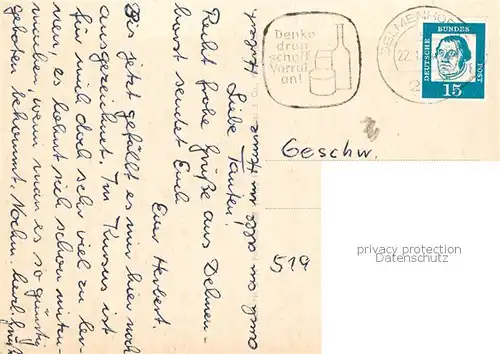 Liebe Tanten!
Recht frohe Grüße aus Delmen-
horst sendet Euch
Euer Herbert.
Bis jetzt gefällt es mir hier noch
ausgezeichnet. Im Kursus ist
für mich doch sehr viel zu ler-
nen, es lohnt sich schon mitzu-
machen, wenn man es so günstig
geboten bekommt. Nochm. herzl. Grüße
Denke
dran
schaff
Vorrat
an!
DELMENHORST
22.
2
DEUTSCHE
BUNDES
POST
15
Geschw.
519
privacy protection
Datenschutz